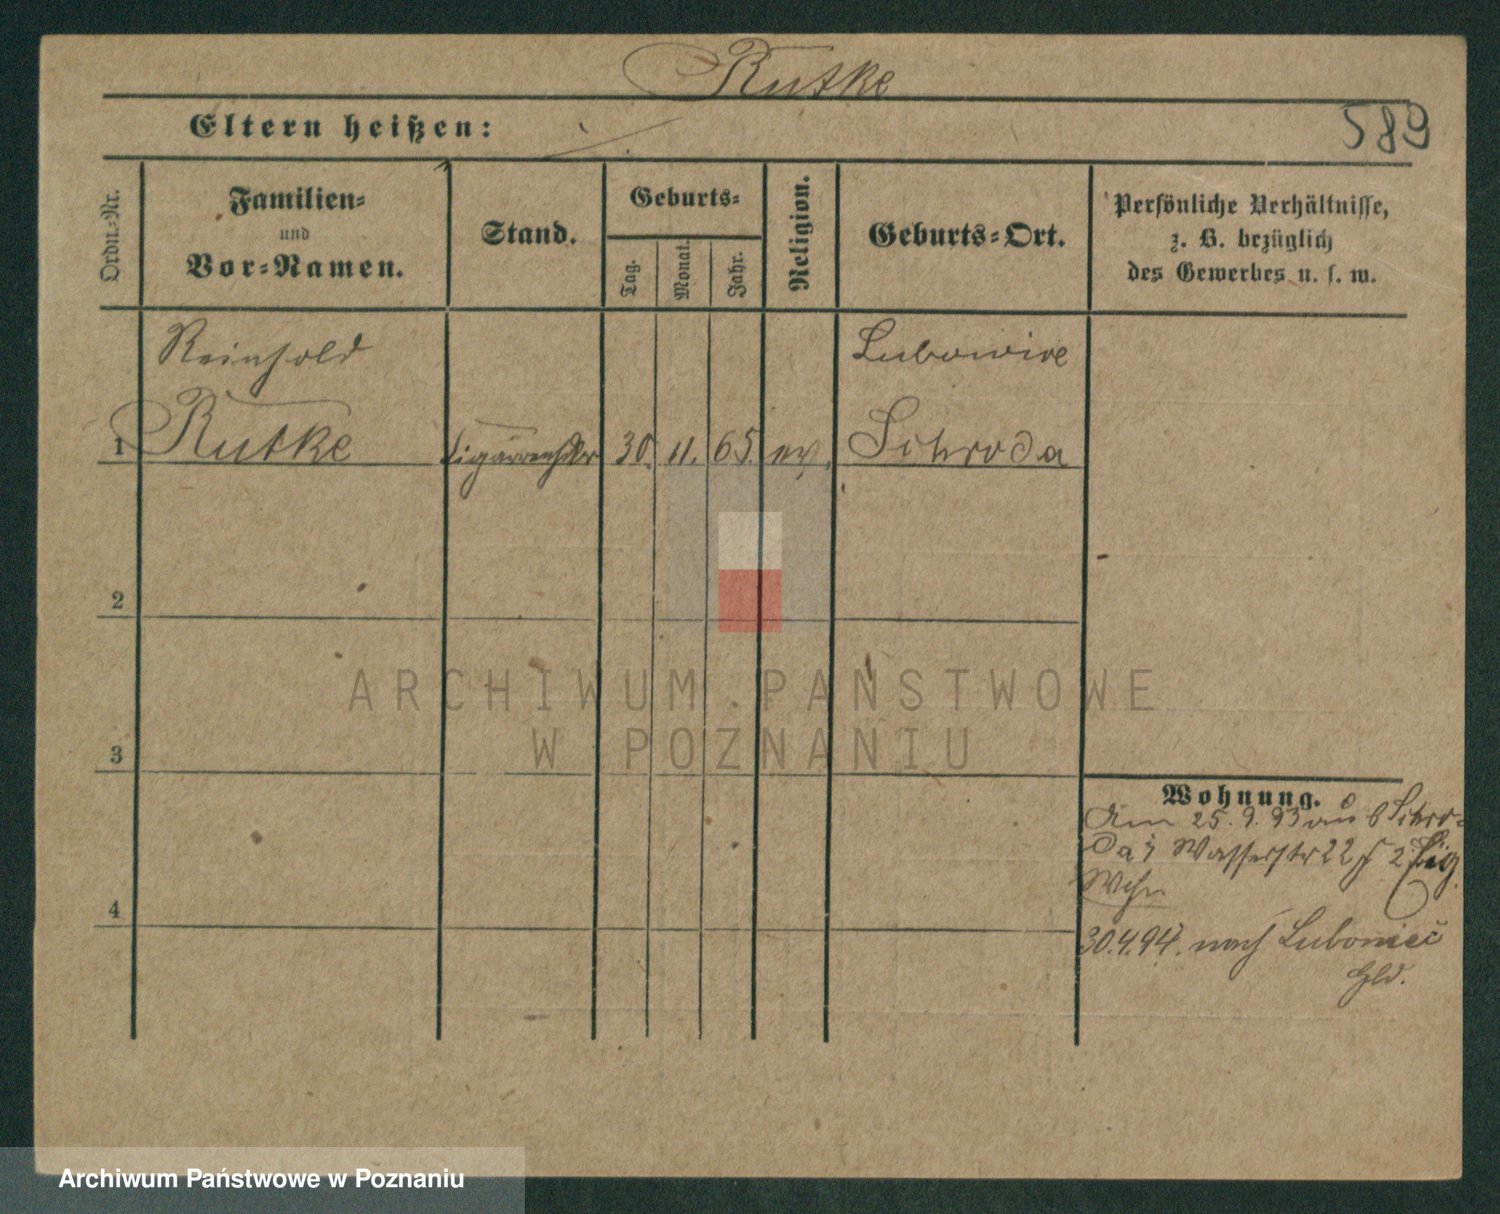 Rutke
Eltern heißen:
589
Ordn.-Nr.
Familien-
und
Vor-Namen.
Stand.
Geburts-
Tag.
Monat.
Jahr.
Religion.
Geburts-Ort.
Persönliche Verhältnisse,
z. B. bezüglich
des Gewerbes u. s. w.
Reinhold
1 Rutke 30. 11. 65. ev. Schroda
2
3
4
Wohnung.
Am 25. 9. 93 aus Schro-
da; Wasserstr 22
30.4.94. nach
ARCHIWUM PAŃSTWOWE
W POZNANIU
Archiwum Państwowe w Poznaniu